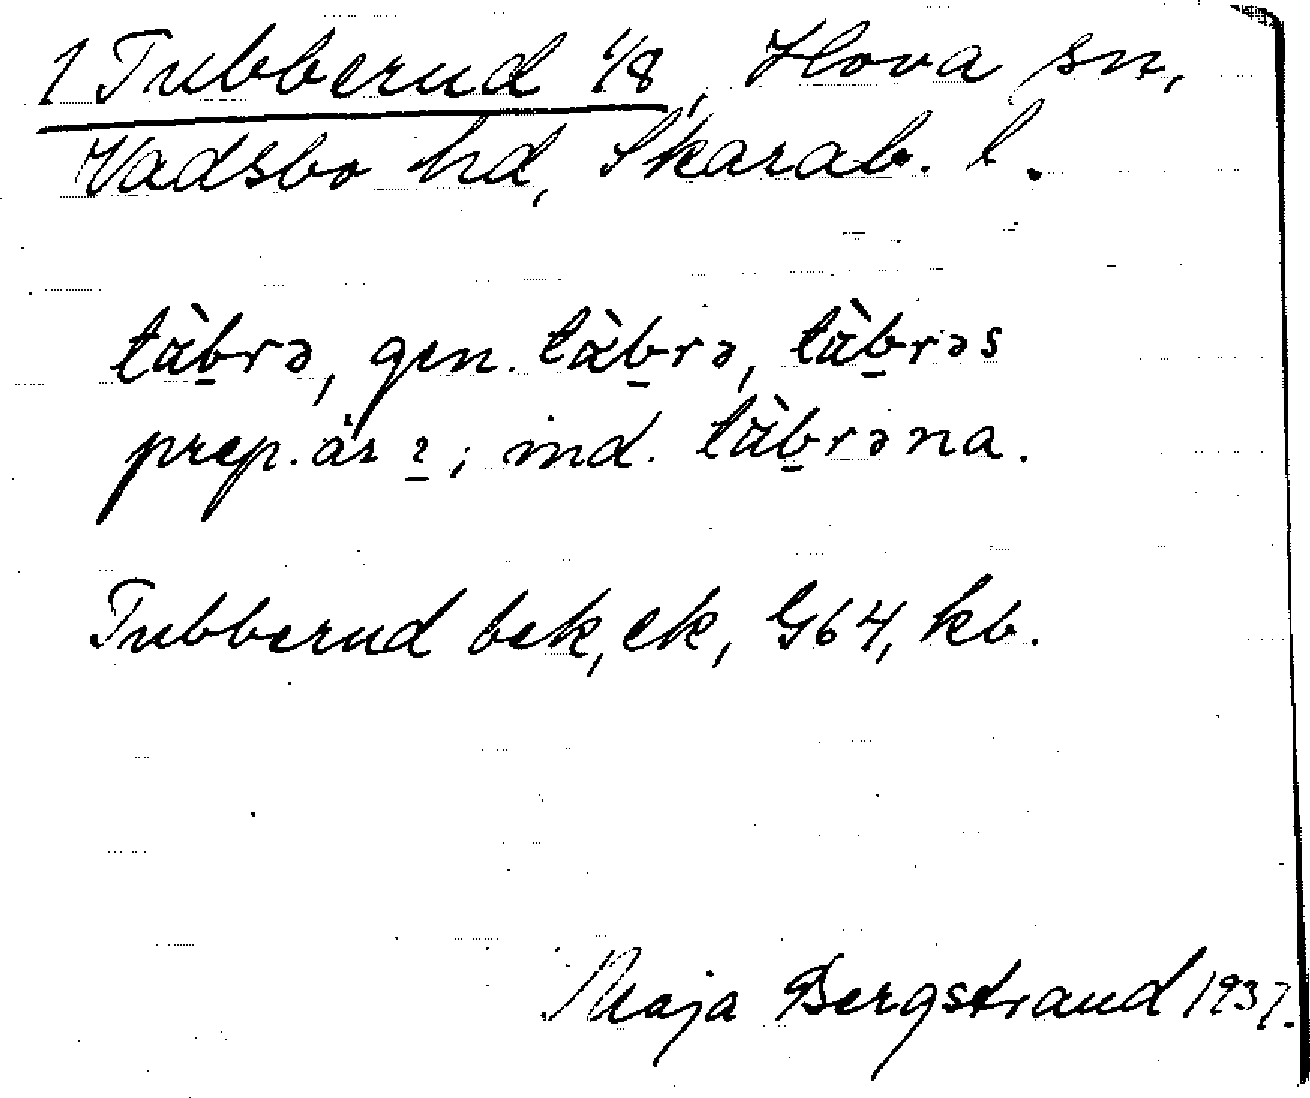 1 Tubberud 1/8, Hova sn,
Vadsbo hd, Skarab. l.
tàb̲rə, gen. tàb̲rə, tàb̲rəs
prep. är ; ind. tàb̲rəna.
Tubberud bek, ek, G64, kb.
Maja Bergstrand 1937.